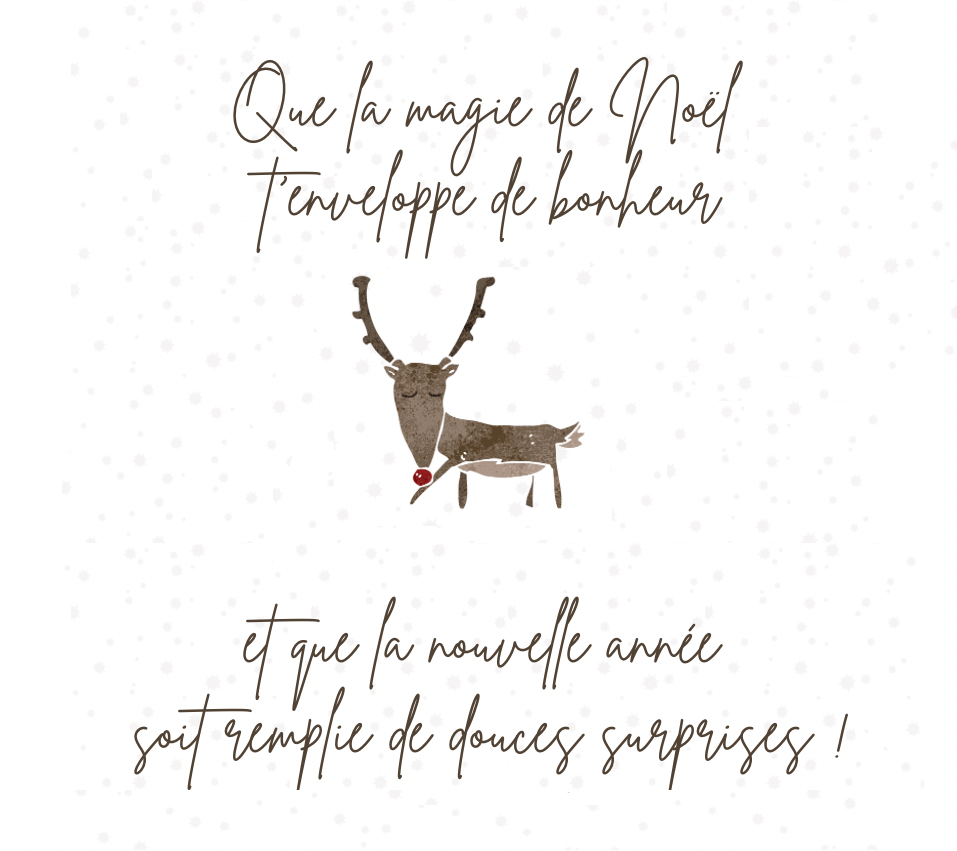 Que la magie de Noël
t'enveloppe de bonheur
et que la nouvelle année
soit remplie de douces surprises !